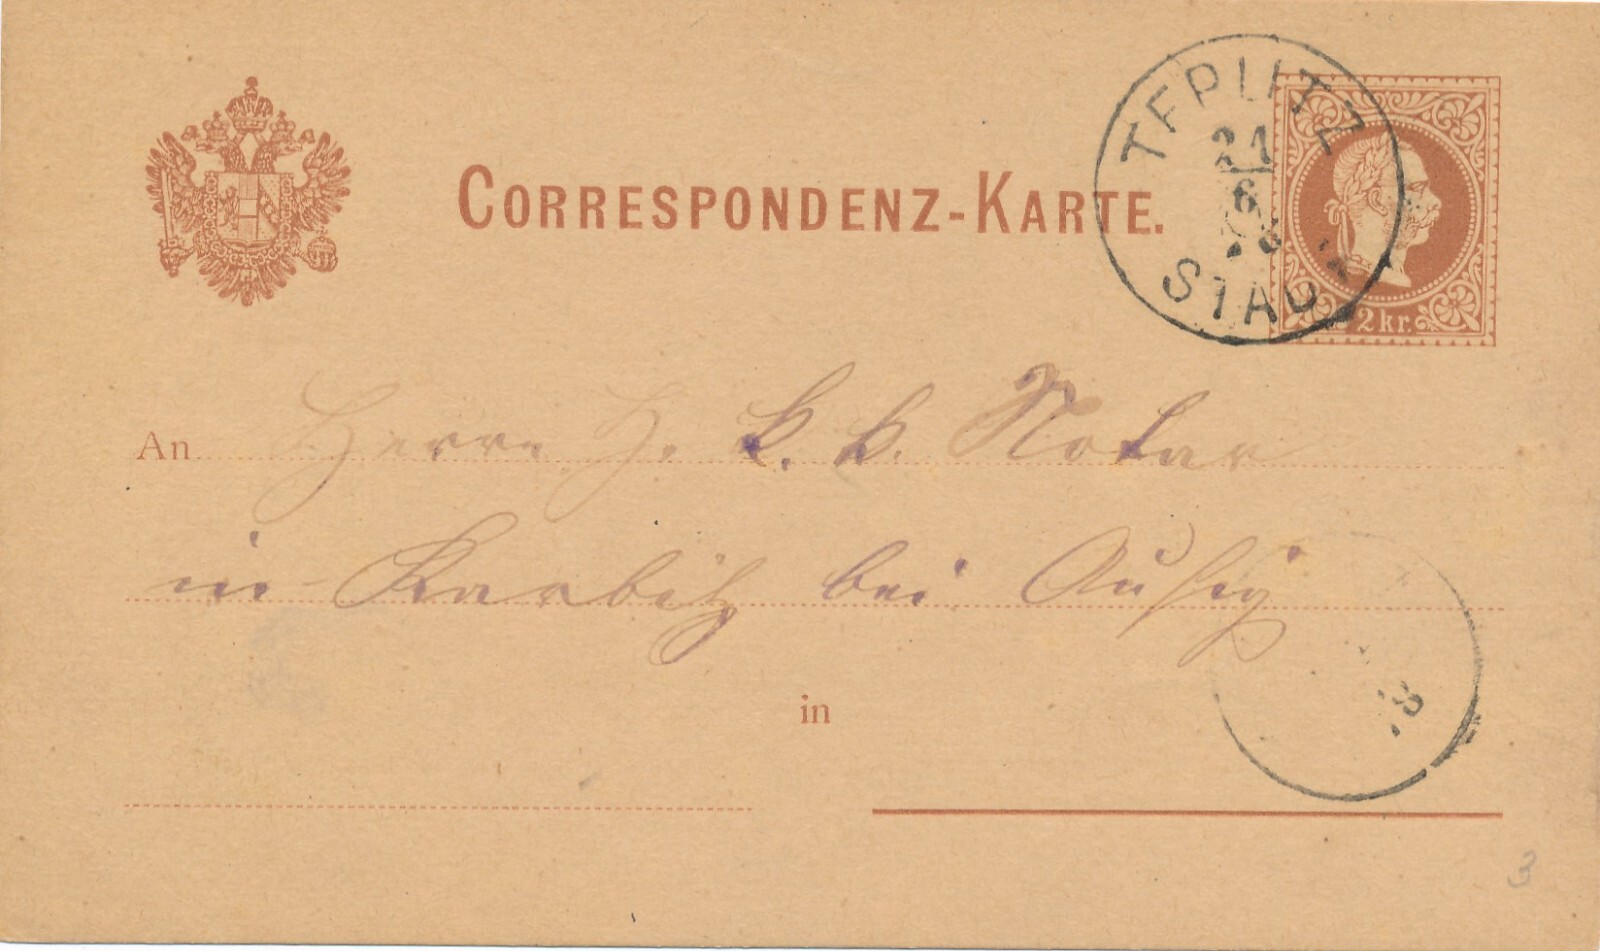 CORRESPONDENZ-KARTE.
TEPLITZ
21
6
78
STADT
2 kr.
An Herrn H. k. k. Notar
in Karbitz bei Aussig
in
78
3